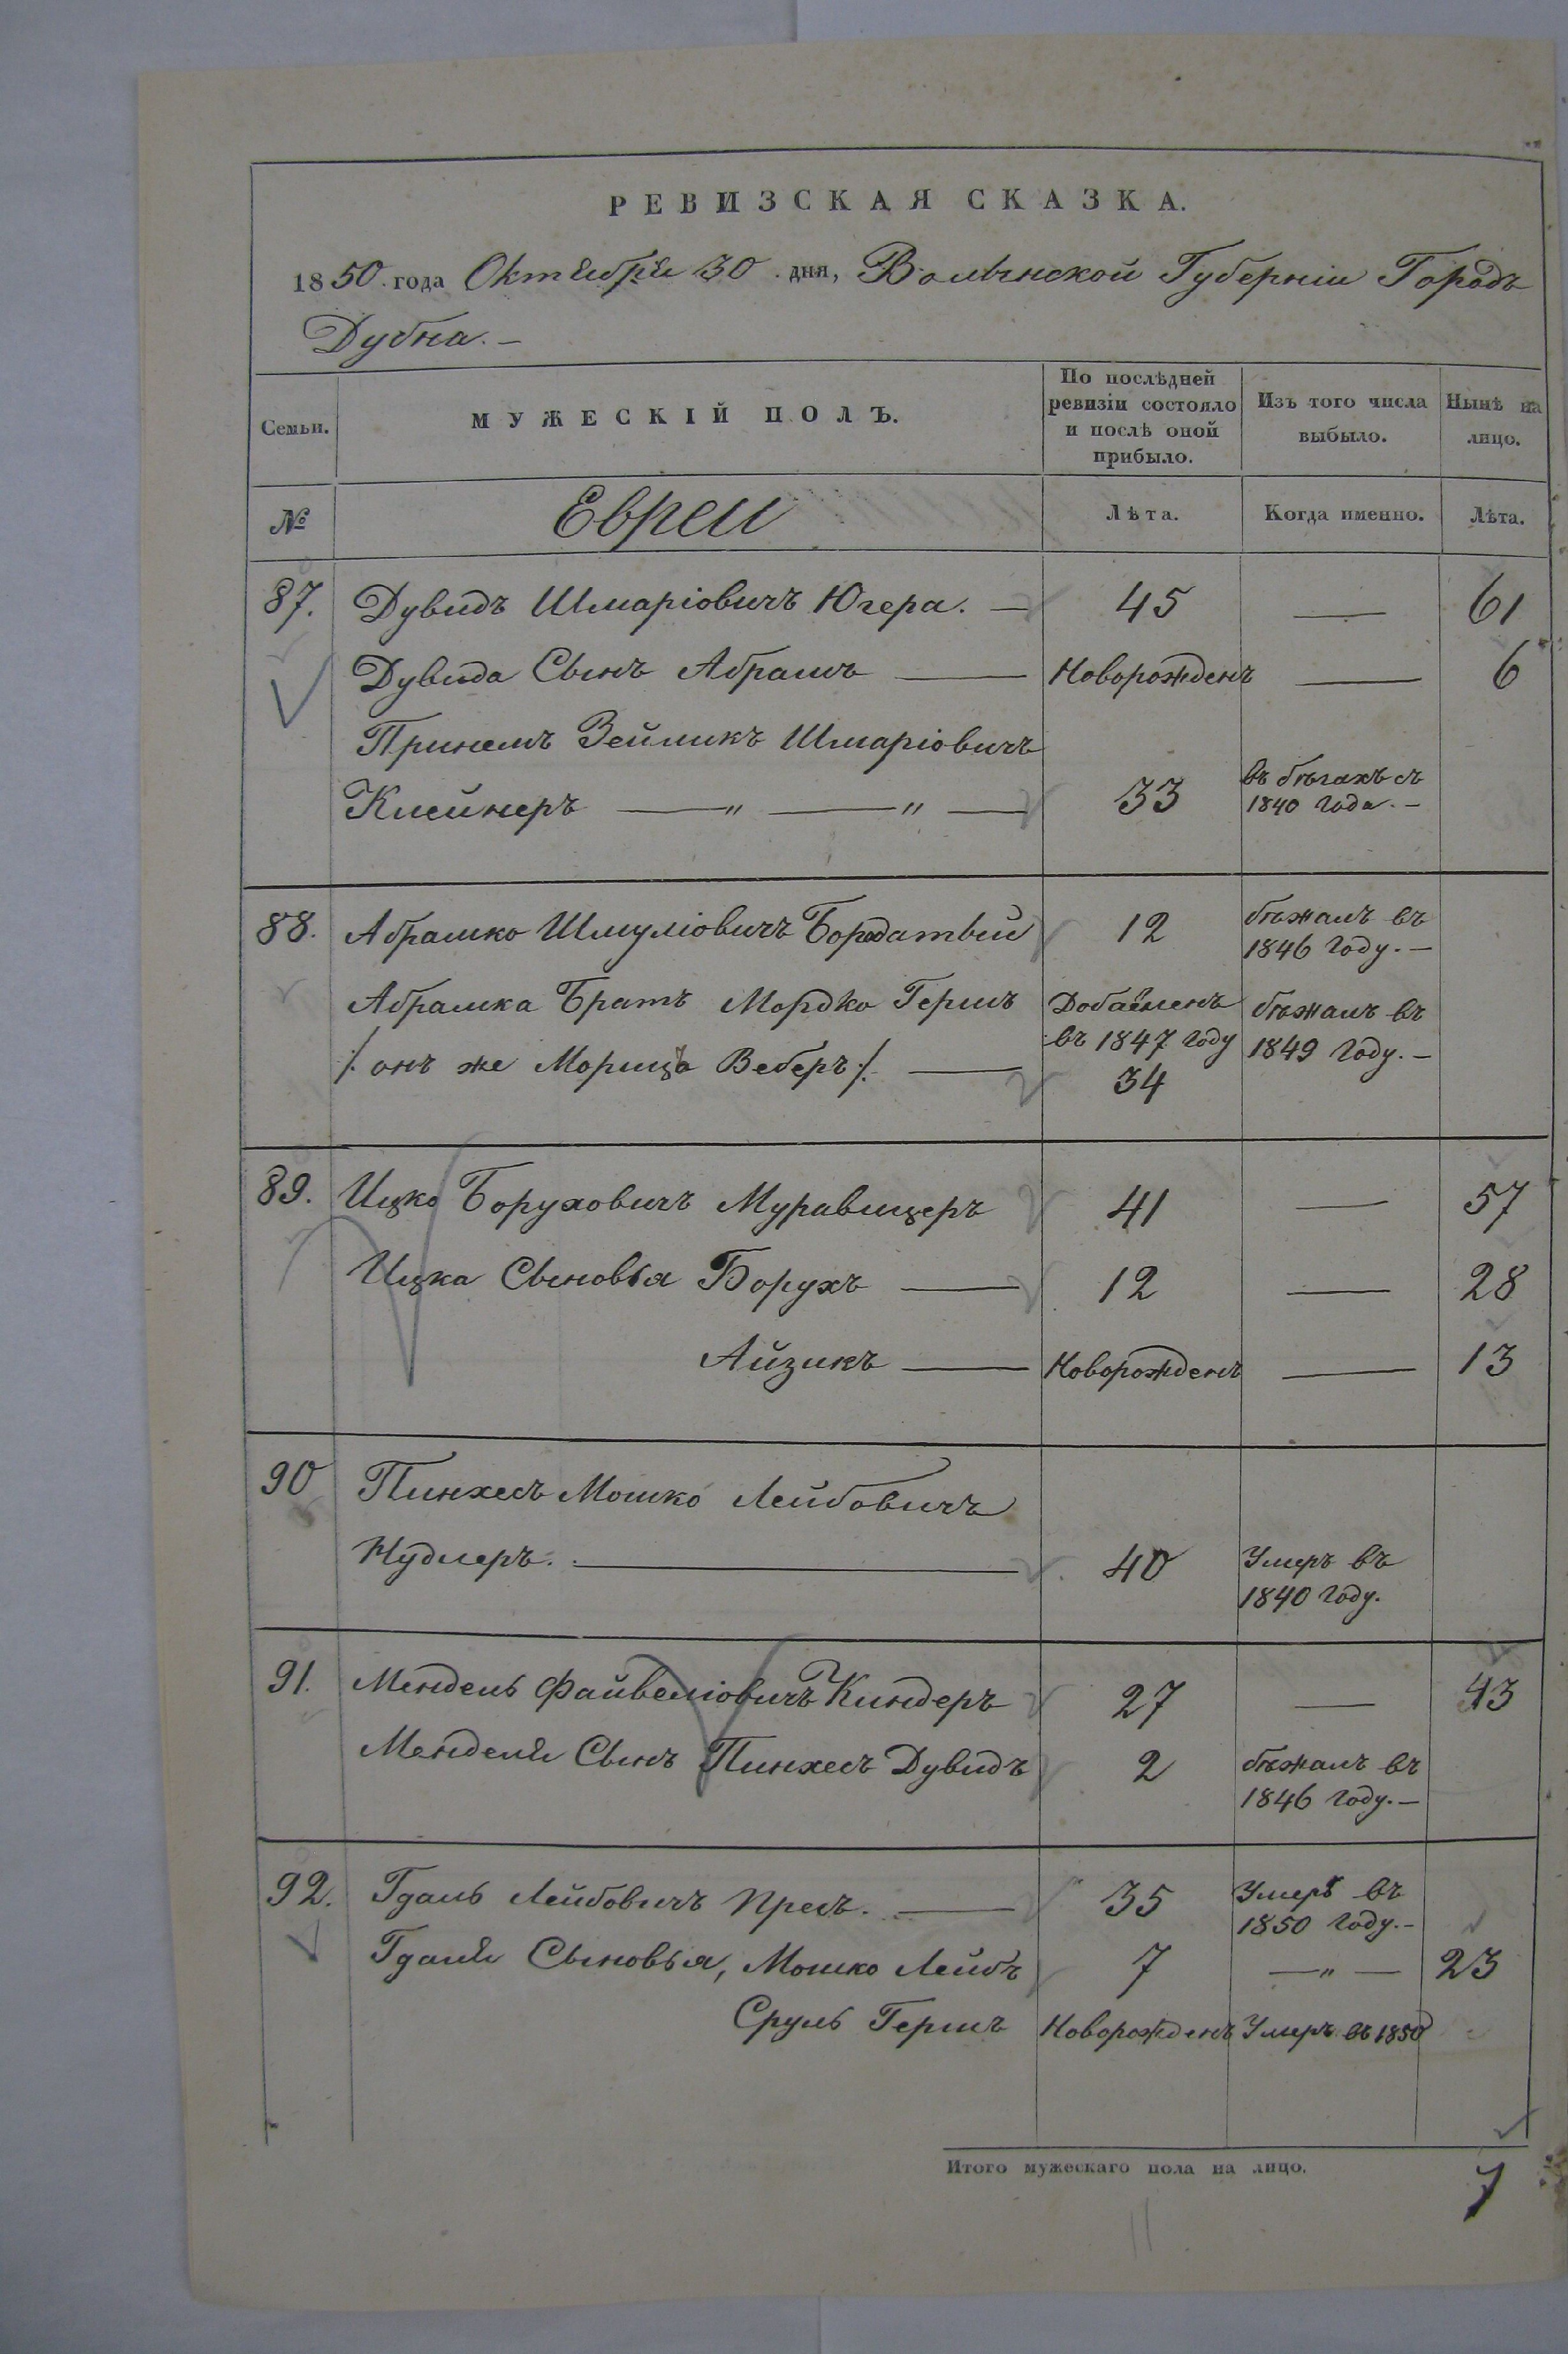 РЕВИЗСКАЯ СКАЗКА.
1850 года Октября 30 дня, Волынской Губерніи Городъ
Дубна. —
Семьи.
МУЖЕСКІЙ ПОЛЪ.
По послѣдней ревизіи состояло и послѣ оной прибыло.
Изъ того числа выбыло.
Нынѣ на лицо.
№
Евреи
Лѣта.
Когда именно.
Лѣта.
87. Дувидъ Шмаріовичъ Югера. — 45 — 61
Дувида Сынъ Абрамъ — Новорожденъ — 6
Пріемъ Зейликъ Шмаріовичъ
Клейнеръ — " — " — 33 въ бѣгахъ съ 1840 года. —
88. Абрамко Шмуліовичъ Бородатый 12 бѣжалъ въ 1846 году. —
Абрамка Братъ Мордко Гершъ Добавленъ въ 1847 году бѣжалъ въ 1849 году. —
/: онъ же Морица Веберъ :/ — 34
89. Ицко Боруховичъ Муравицеръ 41 — 57
Ицка Сыновья Борухъ — 12 — 28
Айзикъ — Новорожденъ — 13
90 Пинхесъ Мошко Лейбовичъ
Нудлеръ. — 40 Умеръ въ 1840 году.
91. Мендель Файвеліовичъ Киндеръ 27 — 43
Менделя Сынъ Пинхесъ Дувидъ 2 бѣжалъ въ 1846 году. —
92. Гдаль Лейбовичъ Пресъ. — 35 Умеръ въ 1850 году. —
Гдаля Сыновья, Мошко Лейбъ 7 — " — 23
Сруль Гершъ Новорожденъ Умеръ въ 1850
Итого мужескаго пола на лицо. 7